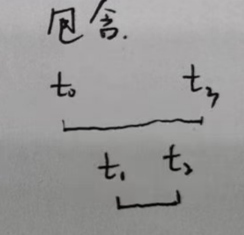 包含.
t₀ t₃
t₁ t₂